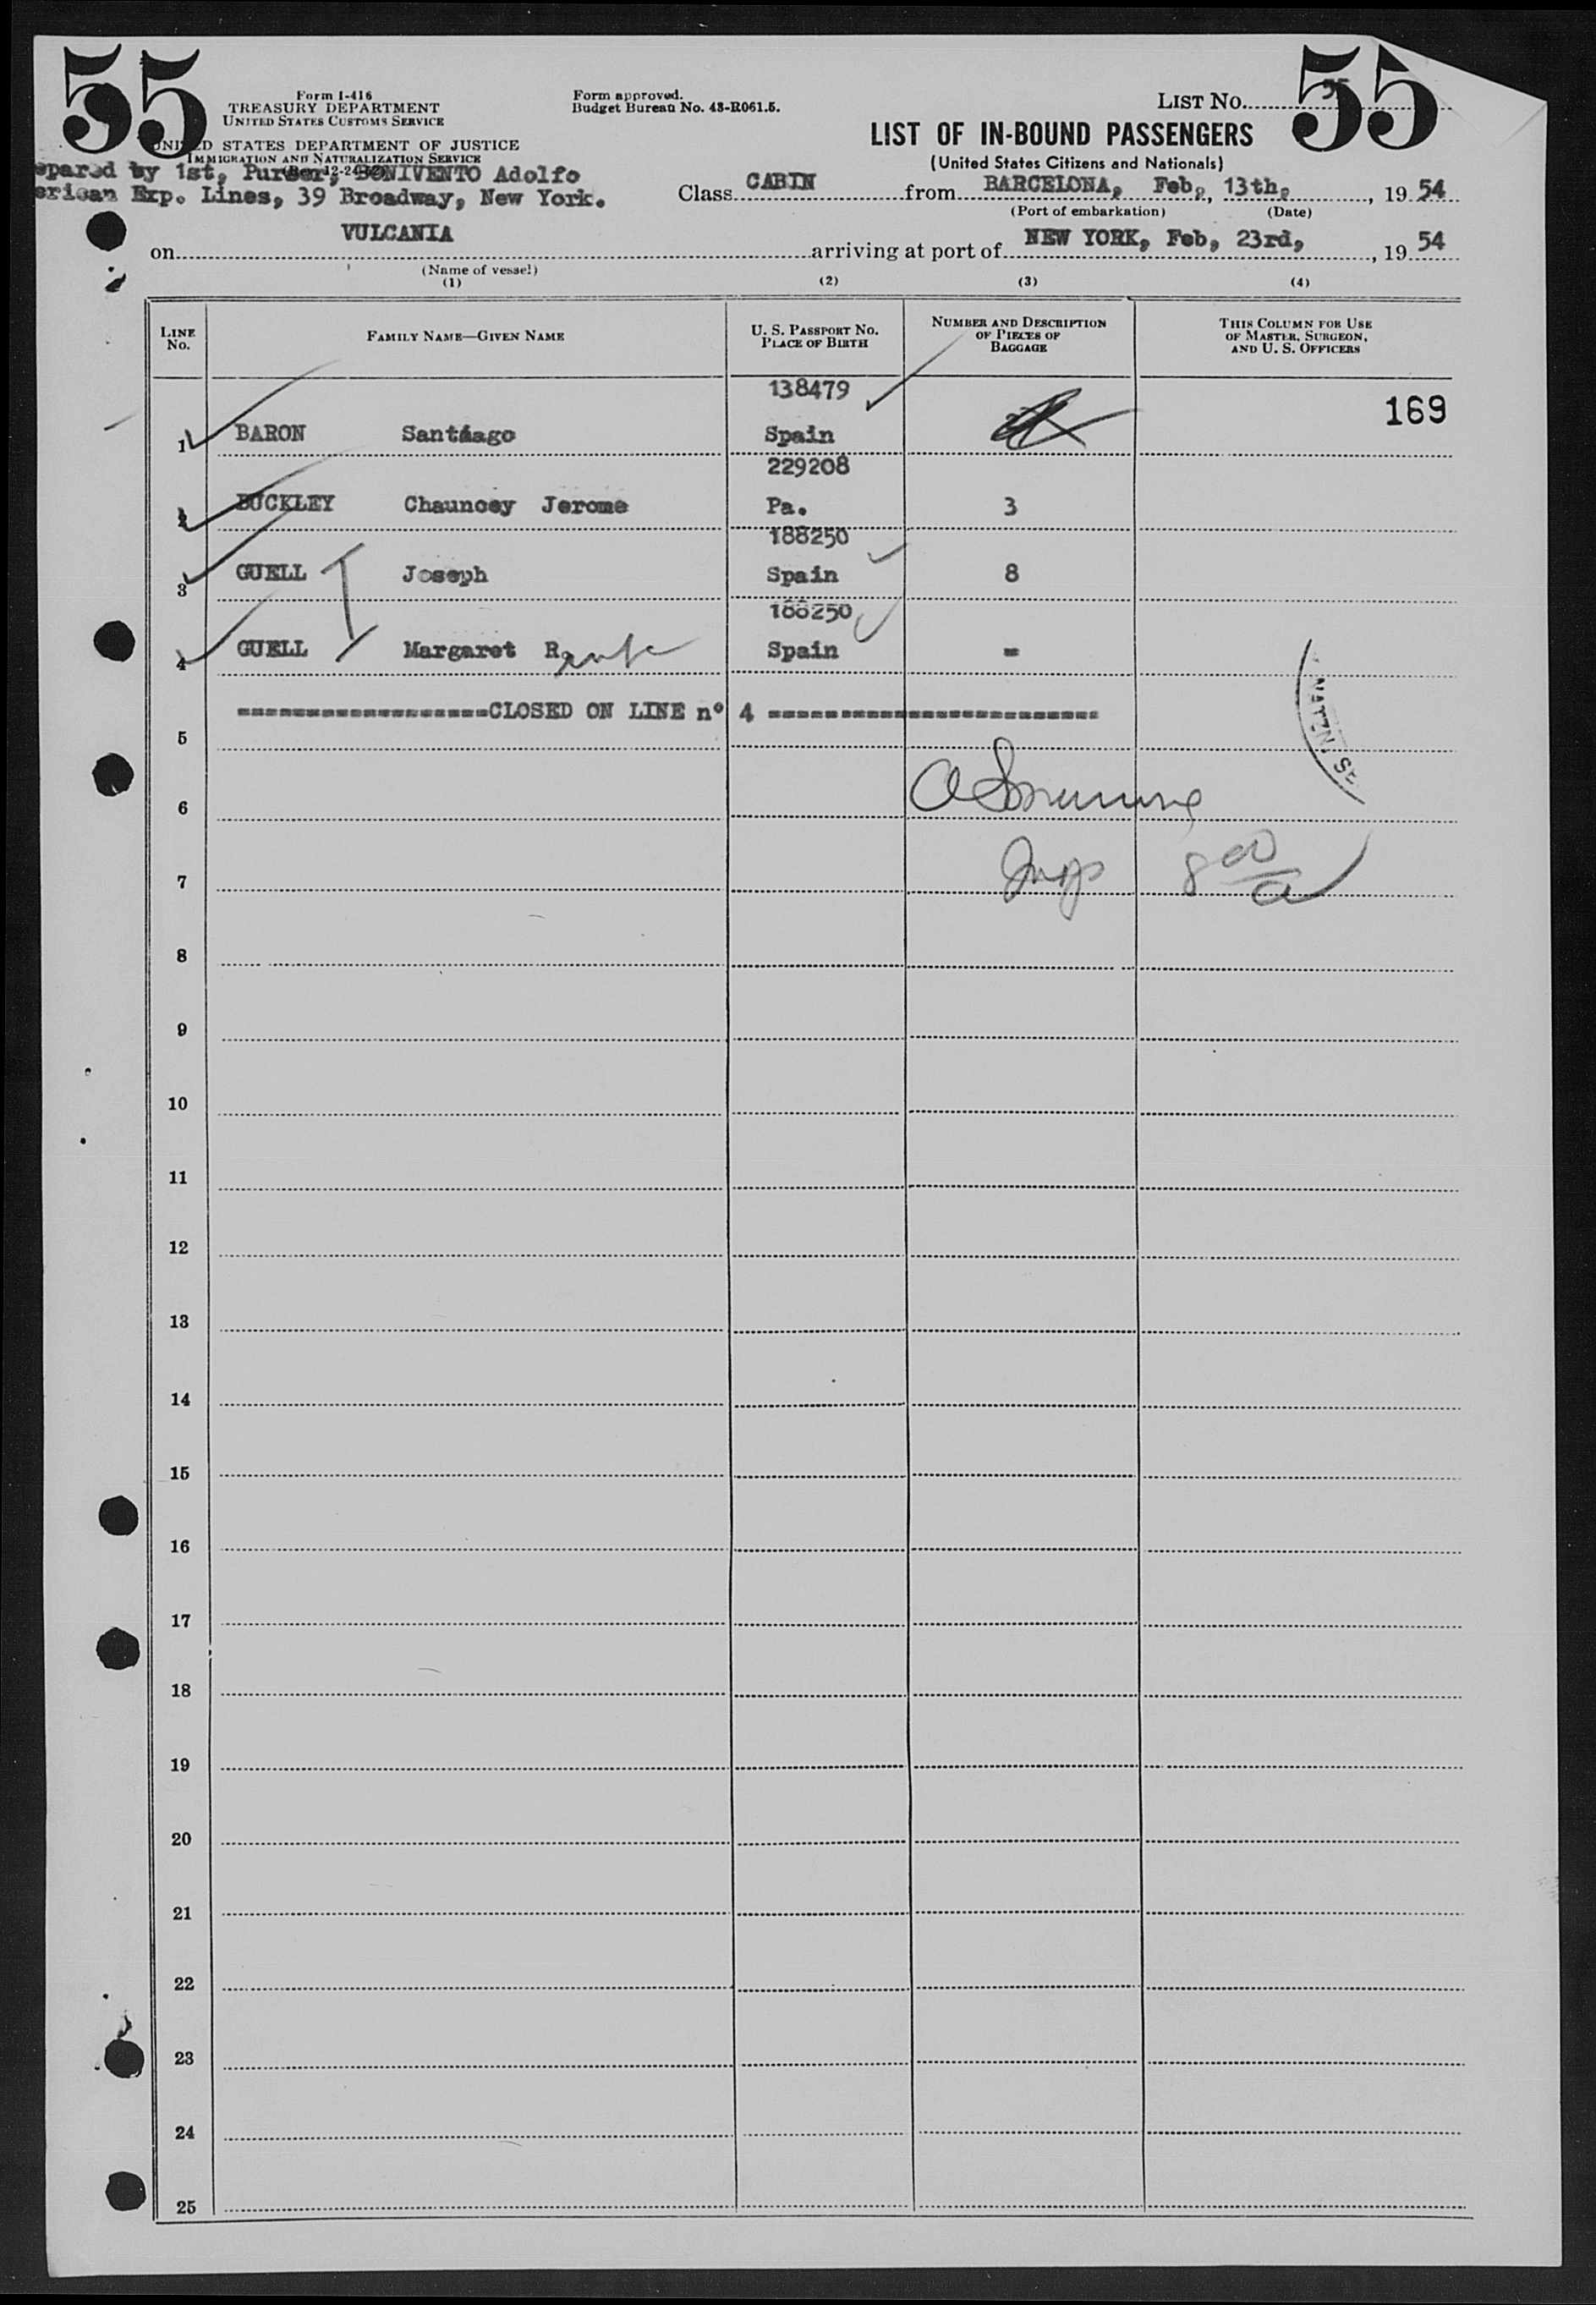 55
55
Form I-416
TREASURY DEPARTMENT
UNITED STATES CUSTOMS SERVICE
UNITED STATES DEPARTMENT OF JUSTICE
IMMIGRATION AND NATURALIZATION SERVICE
Form approved.
Budget Bureau No. 43-R061.5.
LIST NO. 55
LIST OF IN-BOUND PASSENGERS
(United States Citizens and Nationals)
epared by 1st, Purser, BONIVENTO Adolfo
erican Exp. Lines, 39 Broadway, New York.
Class CABIN from BARCELONA, Feb, 13th, 19 54
(Port of embarkation) (Date)
on VULCANIA arriving at port of NEW YORK, Feb, 23rd, 19 54
(Name of vessel)
(1) (2) (3) (4)
LINE NO.
FAMILY NAME—GIVEN NAME
U. S. PASSPORT NO.
PLACE OF BIRTH
NUMBER AND DESCRIPTION
OF PIECES OF
BAGGAGE
THIS COLUMN FOR USE
OF MASTER, SURGEON,
AND U. S. OFFICERS
138479
169
1 BARON Santiago Spain
229208
2 BUCKLEY Chauncey Jerome Pa. 3
188250
3 GUELL Joseph Spain 8
188250
4 GUELL Margaret R. wife Spain -
-------------------CLOSED ON LINE nº 4 -------------------------
5
6
7
8
9
10
11
12
13
14
15
16
17
18
19
20
21
22
23
24
25